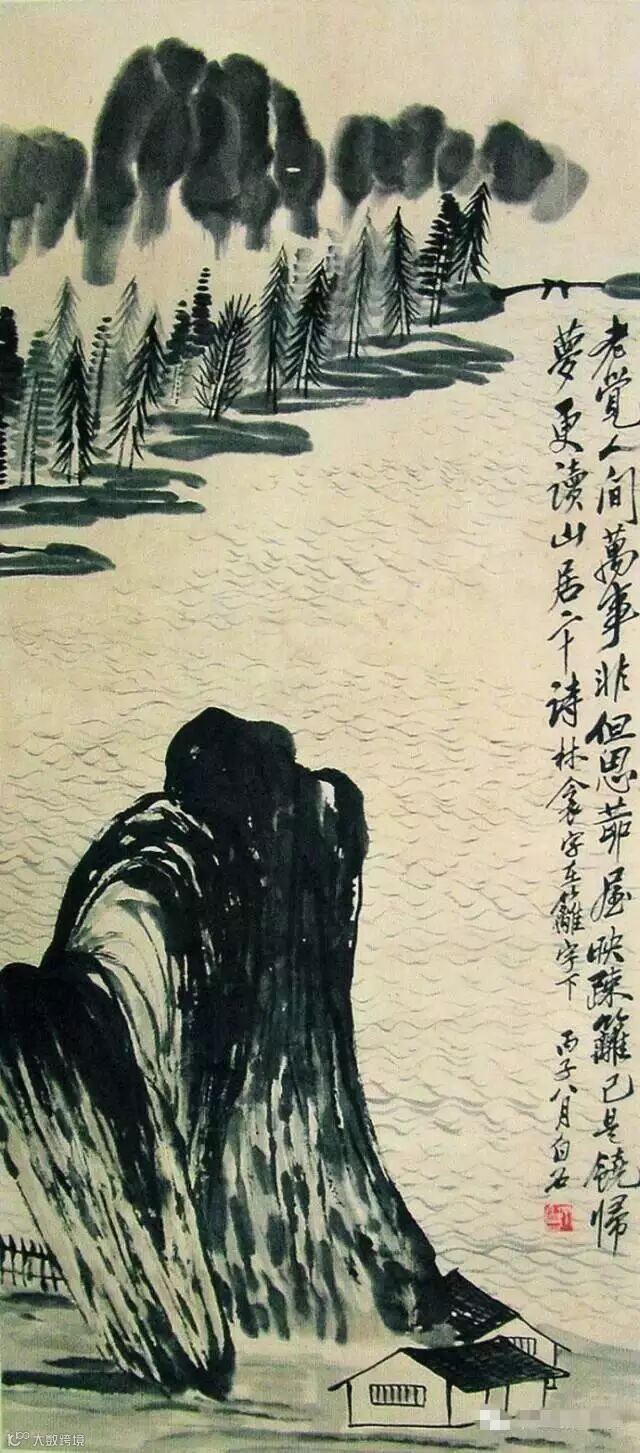 老覺人間萬事非但思茆屋映疎籬已是饒歸
夢更讀山居二十詩林衾字在籬字下 丙子八月白石
大数跨境